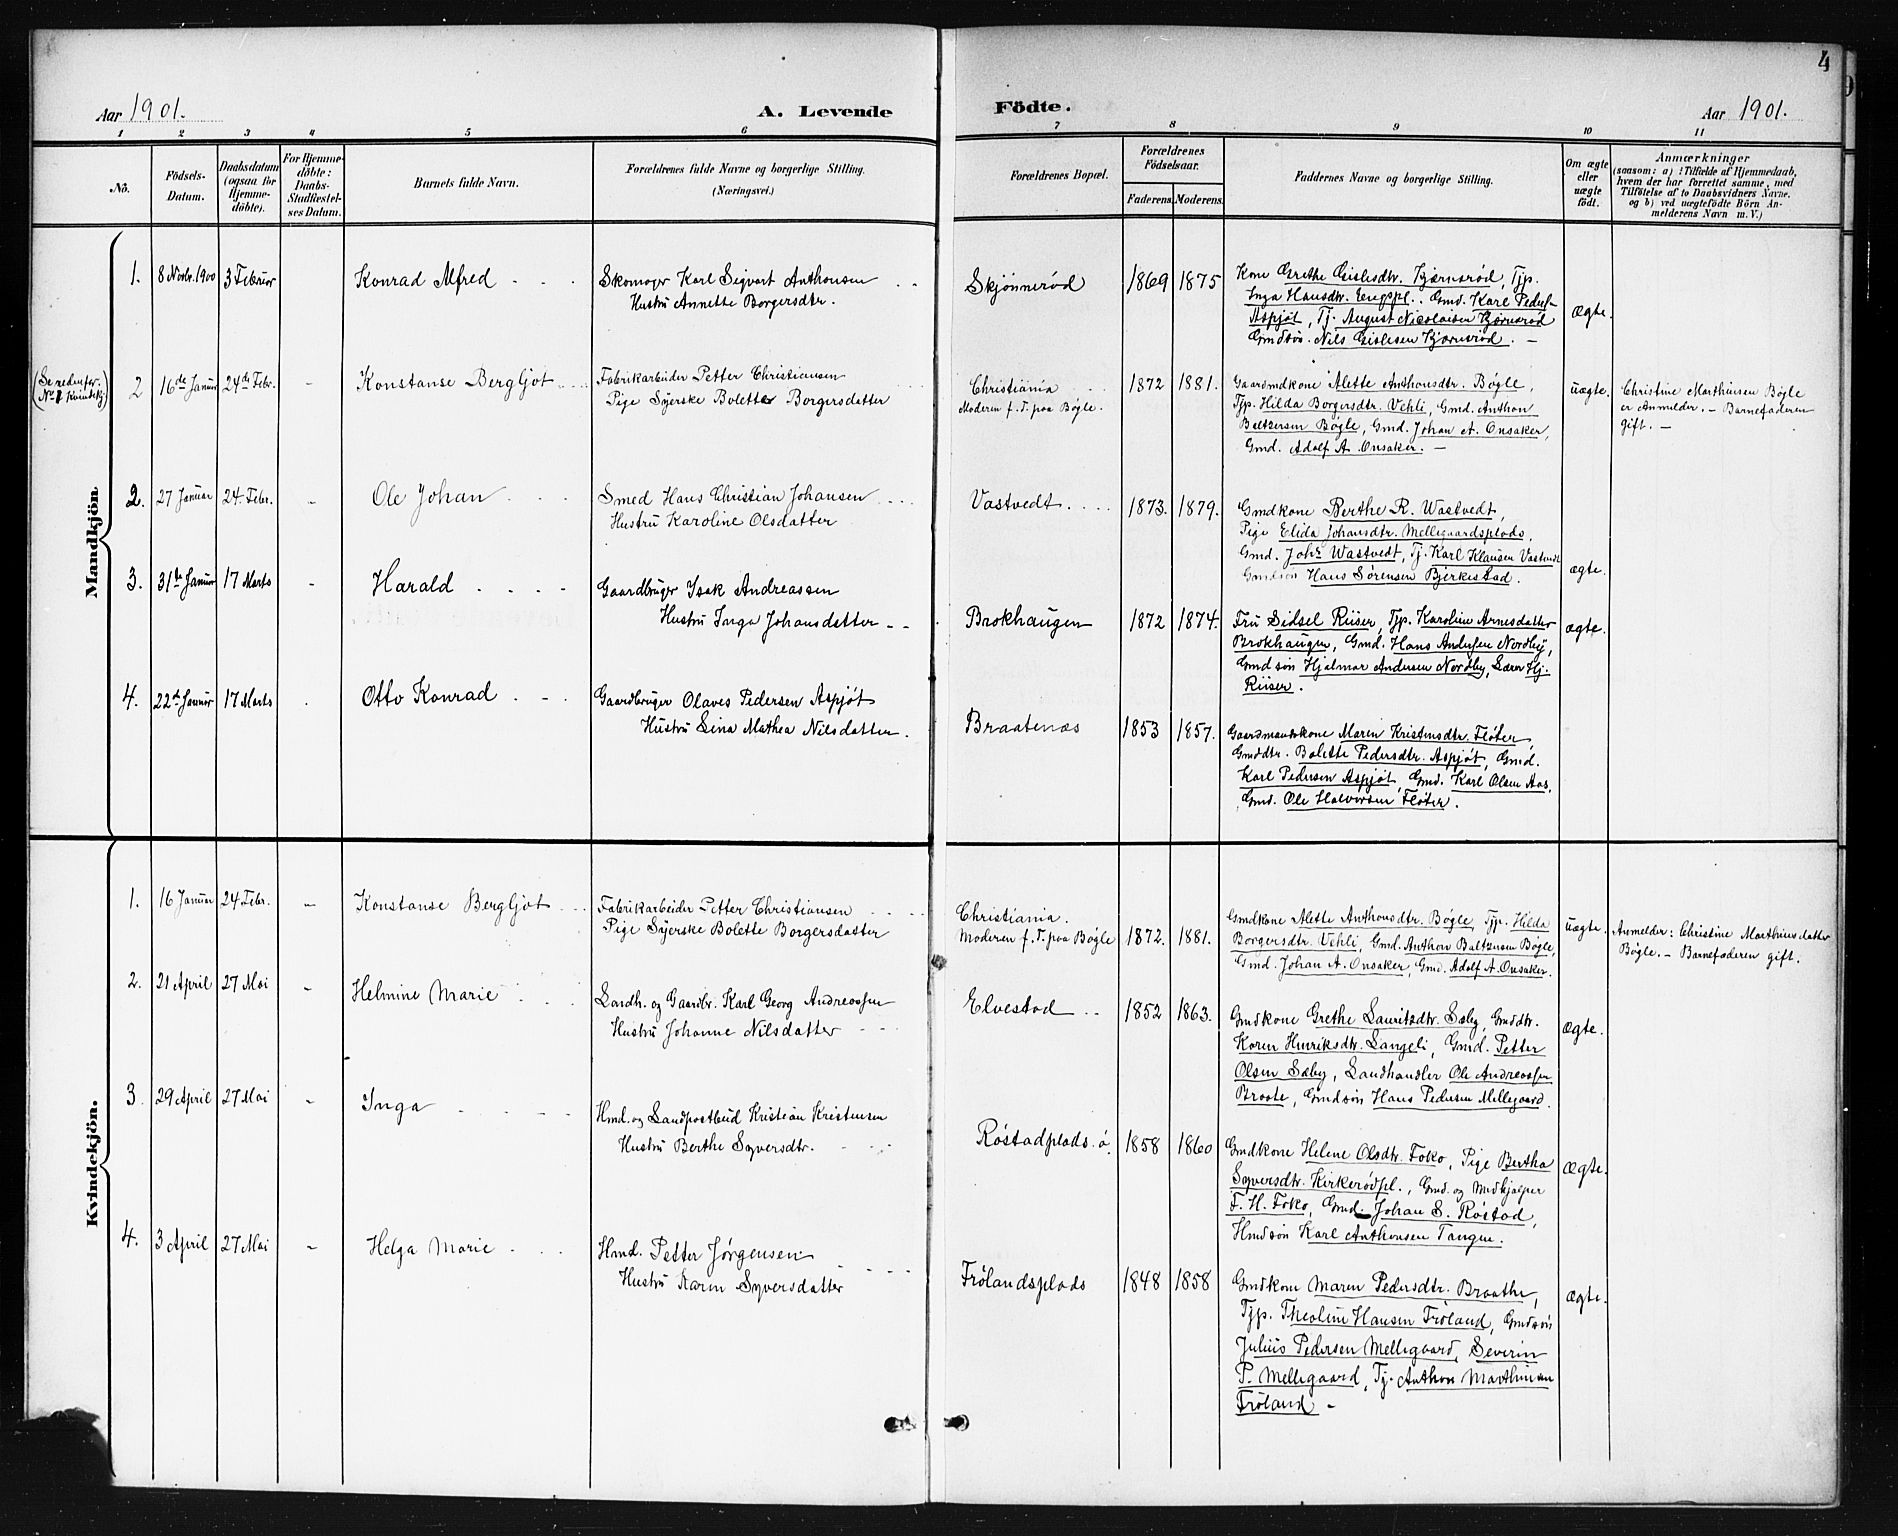 4
Aar 1901.
A. Levende
Födte.
Aar 1901.
1 2 3 4 5 6 7 8 9 10 11
Nô.
Födsels-
Datum.
Daabsdatum
(ogsaa for
Hjemme-
döbte).
For Hjemme-
döbte:
Daabs-
Stadfæstel-
ses Datum.
Barnets fulde Navn.
Forældrenes fulde Navne og borgerlige Stilling.
(Næringsvei.)
Forældrenes Bopæl.
Forældrenes
Födselsaar.
Faderens.
Moderens.
Faddernes Navne og borgerlige Stilling.
Om ægte
eller
uægte
födt.
Anmærkninger
(saasom: a) i Tilfælde af Hjemmedaab,
hvem der har forrettet samme, med
Tilföielse af to Daabsvidners Navne,
og b) ved uægtefödte Börn An-
melderens Navn m. V.)
Mandkjön.
1. 8 Novbr. 1900 3 Februar
Konrad Alfred
Skomager Karl Sigvart Anthonsen
Hustru Annette Borgersdtr.
Skjønnerød
1869 1875
Kone Grethe Gislesdtr. Kjærnsrød, Tjp.
Inga Hansdtr. Engspl., Gmd. Karl Peders.
Aspjøt, Tj. August Nicolaisen Kjørnsrød
Gmdsön Nils Gislesen Kjærnsrød. —
ægte.
(Se nedenfor
No 1 Kvindekj.)
2 16de Januar 24de Febr. -
Konstanse Bergljot
Fabrikarbeider Petter Christiansen
Pige Syerske Bolette Borgersdatter
Christiania
Moderen f. T. paa Bøgle.
1872 1881.
Gaardmdkone Alette Anthonsdtr. Bøgle,
Tjp. Hilda Borgersdtr. Vehli, Gmd. Anthon
Baltzersen Bøgle, Gmd. Johan A. Onsaker,
Gmd. Adolf A. Onsaker. —
uægte.
Christine Marthinsen Bøgle
er Anmelder. — Barnefaderen
gift. —
2. 27 Januar 24. Febr. -
Ole Johan
Smed Hans Christian Johansen
Hustru Karoline Olsdatter
Vastvedt
1873. 1879.
Gmdkone Berthe R. Wastvedt,
Pige Elida Johansdtr. Mellegaardsplads,
Gmd. Johs Wastvedt, Tj. Karl Klausen Vastvedt
Gmdsøn Hans Sørensen Bjerkestad.
ægte.
3. 31te Januar 17 Marts -
Harald
Gaardbruger Isak Andreassen
Hustru Inga Johansdatter
Brokhaugen
1872 1874.
Fru Sidsel Riiser, Tjp. Karoline Arnesdatter
Brokhaugen, Gmd. Hans Andersen Nordby,
Gmdsøn Hjalmar Andersen Nordby, Lærer Hj.
Riiser.
ægte.
4. 22de Januar 17 Marts
Otto Konrad
Gaardbruger Olaves Pedersen Aspjøt
Hustru Lina Mathea Nilsdatter.
Braatenæs
1853 1857.
Gaardmandskone Maren Kristensdtr. Fløter,
Gmddtr. Bolette Pedersdtr. Aspjøt, Gmd.
Karl Pedersen Aspjøt, Gmd. Karl Olsen Aas,
Gmd. Ole Halvorsen Fløter.
Kvindekjön.
1. 16 Januar 24 Febr. -
Konstanse Bergljot
Fabrikarbeider Petter Christiansen
Pige Syerske Bolette Borgersdatter
Christiania.
Moderen f. T. paa Bøgle
1872. 1881.
Gmdkone Alette Anthonsdtr. Bøgle, Tjp. Hilda
Borgersdtr. Vehli, Gmd. Anthon Baltzersen Bøgle,
Gmd. Johan A. Onsaker, Gmd. Adolf A. Onsaker.
uægte.
Anmelder: Christine Marthinsdatter
Bøgle. — Barnefaderen gift.
2. 21 April 27 Mai -
Helmine Marie
Landh. og Gaardbr. Karl Georg Andreassen
Hustru Johanne Nilsdatter
Elvestad
1852 1863.
Gmdkone Grethe Lauritsdtr. Sæby, Gmddtr.
Karen Henriksdtr. Langeli, Gmd. Petter
Olsen Sæby, Landhandler Ole Andreassen
Braate, Gmdsøn Hans Pedersen Mellegaard.
ægte.
3. 29 April 27 Mai -
Inga
Hmd. og Landpostbud Kristian Kristensen
Hustru Berthe Syversdtr.
Røstadplads ø.
1858 1860
Gmdkone Helene Olsdtr. Foko, Pige Bertha
Syversdtr. Kirkerødpl., Gmd. og Medhjælper
F. H. Foko, Gmd. Johan S. Røstad,
Hmdsøn Karl Anthonsen Tangen.
ægte.
4. 3 April 27 Mai -
Helga Marie
Hmd. Petter Jørgensen
Hustru Karen Syversdatter
Frølandsplads
1848 1858
Gmdkone Maren Pedersdtr. Braathe,
Tjp. Theoline Hansen Frøland, Gmdsøn
Julius Pedersen Mellegaard, Severin
P. Mellegaard, Tj. Anthon Marthinsen
Frøland —
ægte.